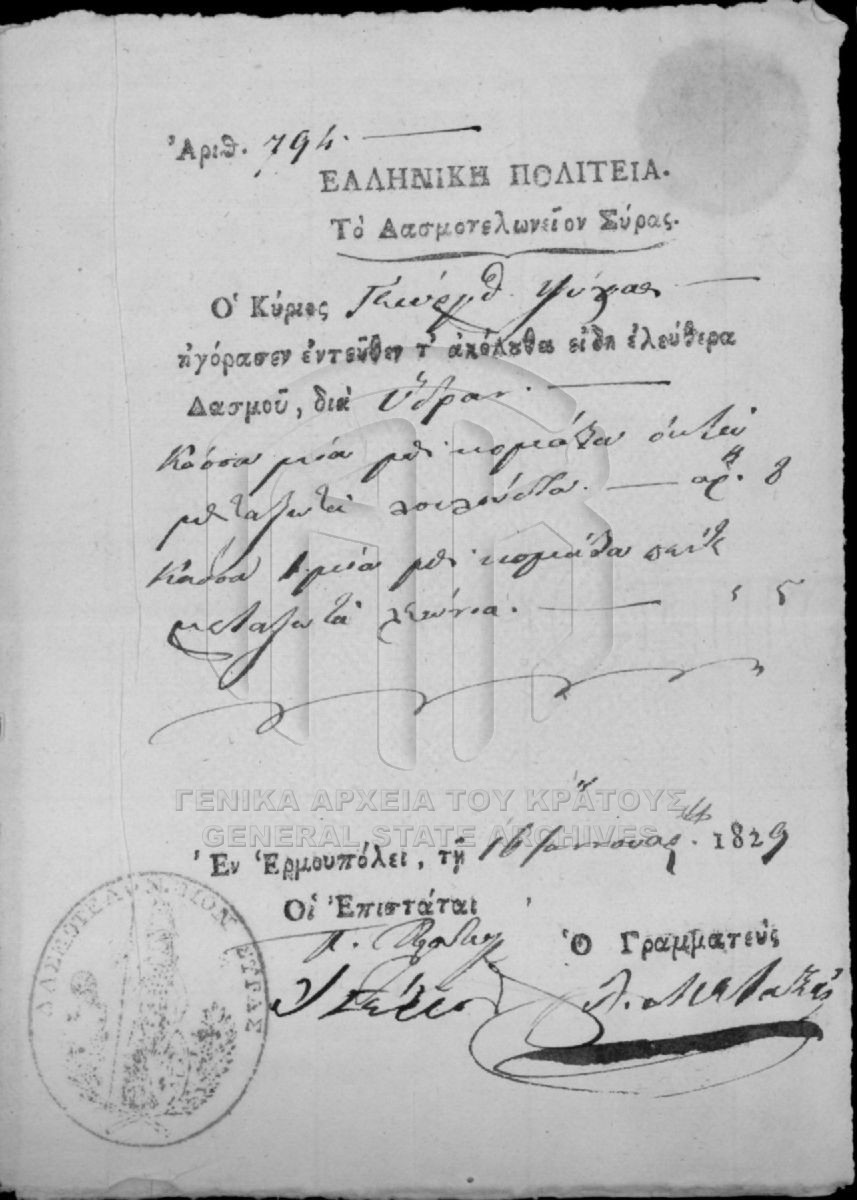 Ἀριθ. 794.
ΕΛΛΗΝΙΚΗ ΠΟΛΙΤΕΙΑ.
Τὸ Δασμοτελωνεῖον Σύρας.
Ὁ Κύριος Γεώργ
ἠγόρασεν ἐντεῦθεν τ' ἀκόλουθα εἴδη ἐλεύθερα
Δασμοῦ, διὰ Ὕδραν.
Κάσσα μία μὲ κομάτια ὀκτὼ
μεταξωτὰ ἀρ. 8
Κάσσα 1 μία μὲ κομάτια πέντε
μεταξωτὰ 5
ΓΕΝΙΚΑ ΑΡΧΕΙΑ ΤΟΥ ΚΡΑΤΟΥΣ
GENERAL STATE ARCHIVES
Ἐν Ἑρμουπόλει, τῇ 16 Ἰαννουαρ. 1829
Οἱ Ἐπιστάται
Ὁ Γραμματεὺς
ΔΑΣΜΟΤΕΛΩΝΕΙΟΝ ΣΥΡΑΣ